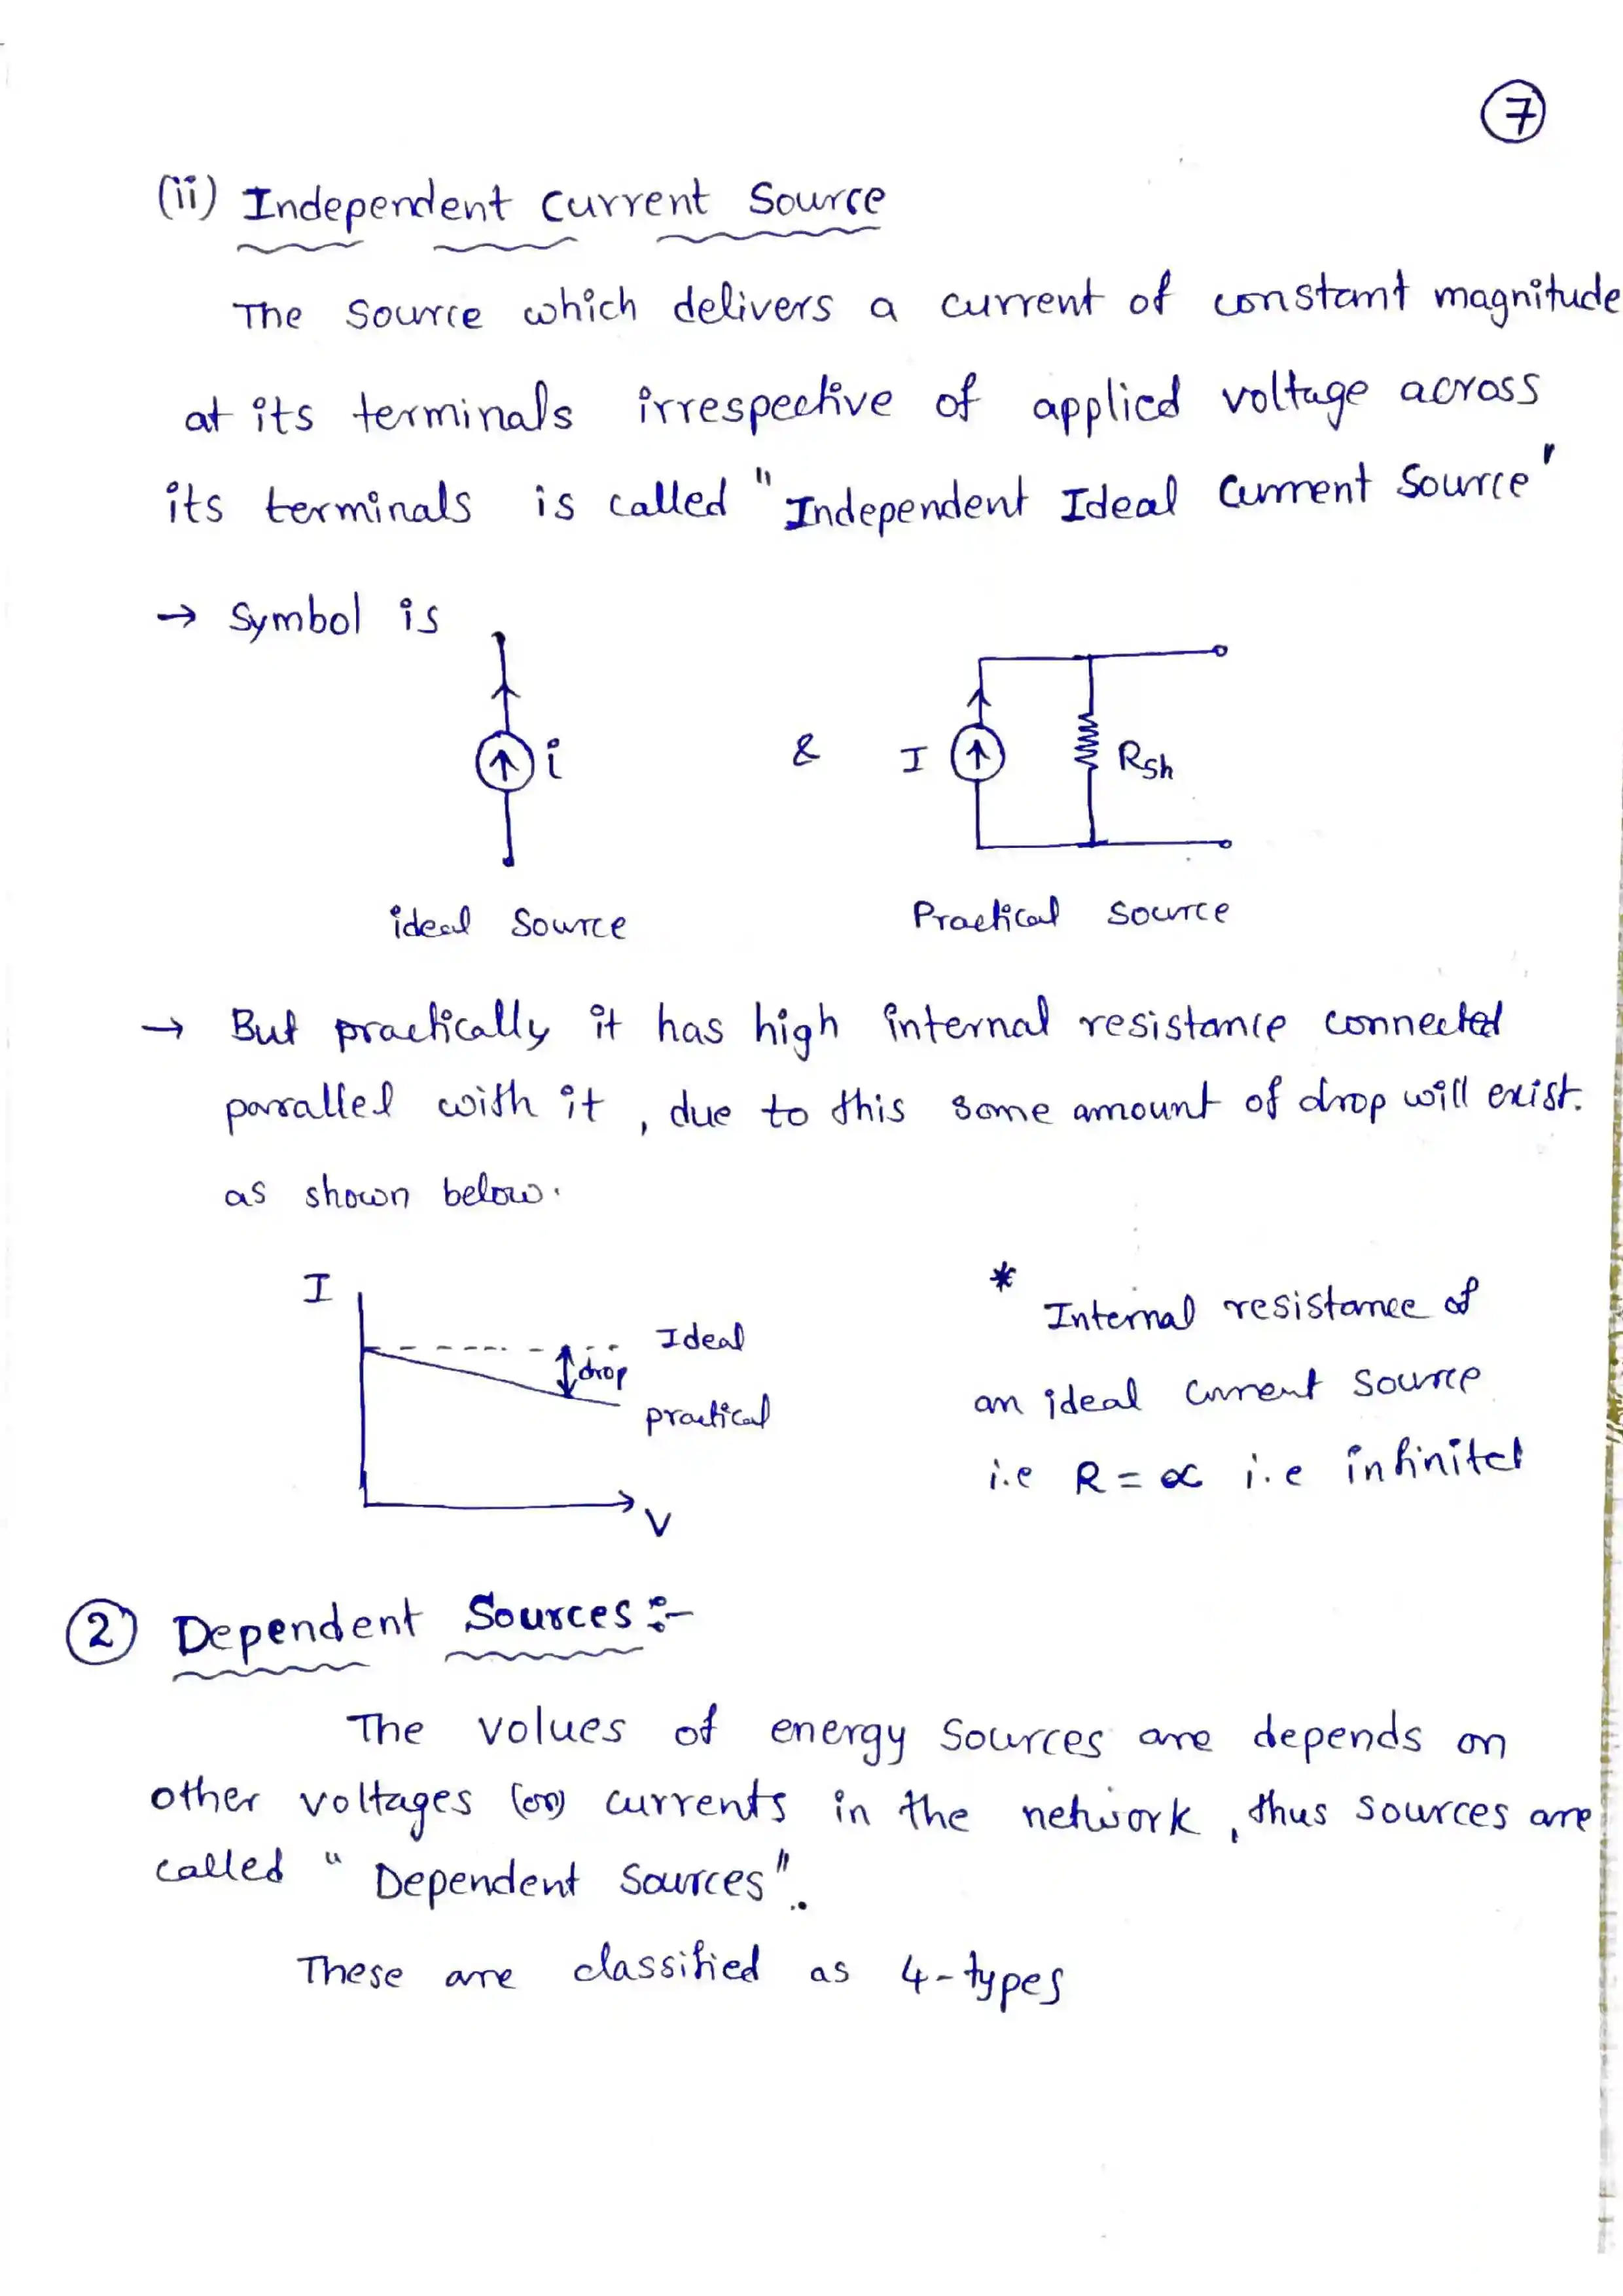 7
(ii) Independent Current Source
The Source which delivers a current of constant magnitude
at its terminals irrespective of applied voltage across
its terminals is called "Independent Ideal Current Source"
→ Symbol is
i & I Rsh
ideal Source Practical Source
→ But practically it has high internal resistance connected
parallel with it, due to this some amount of drop will exist.
as shown below.
I
Ideal
drop
practical
V
* Internal resistance of
an ideal Current Source
i.e R = ∝ i.e infinitet
② Dependent Sources :-
The values of energy Sources are depends on
other voltages (or) currents in the network, thus sources are
called "Dependent Sources".
These are classified as 4-types